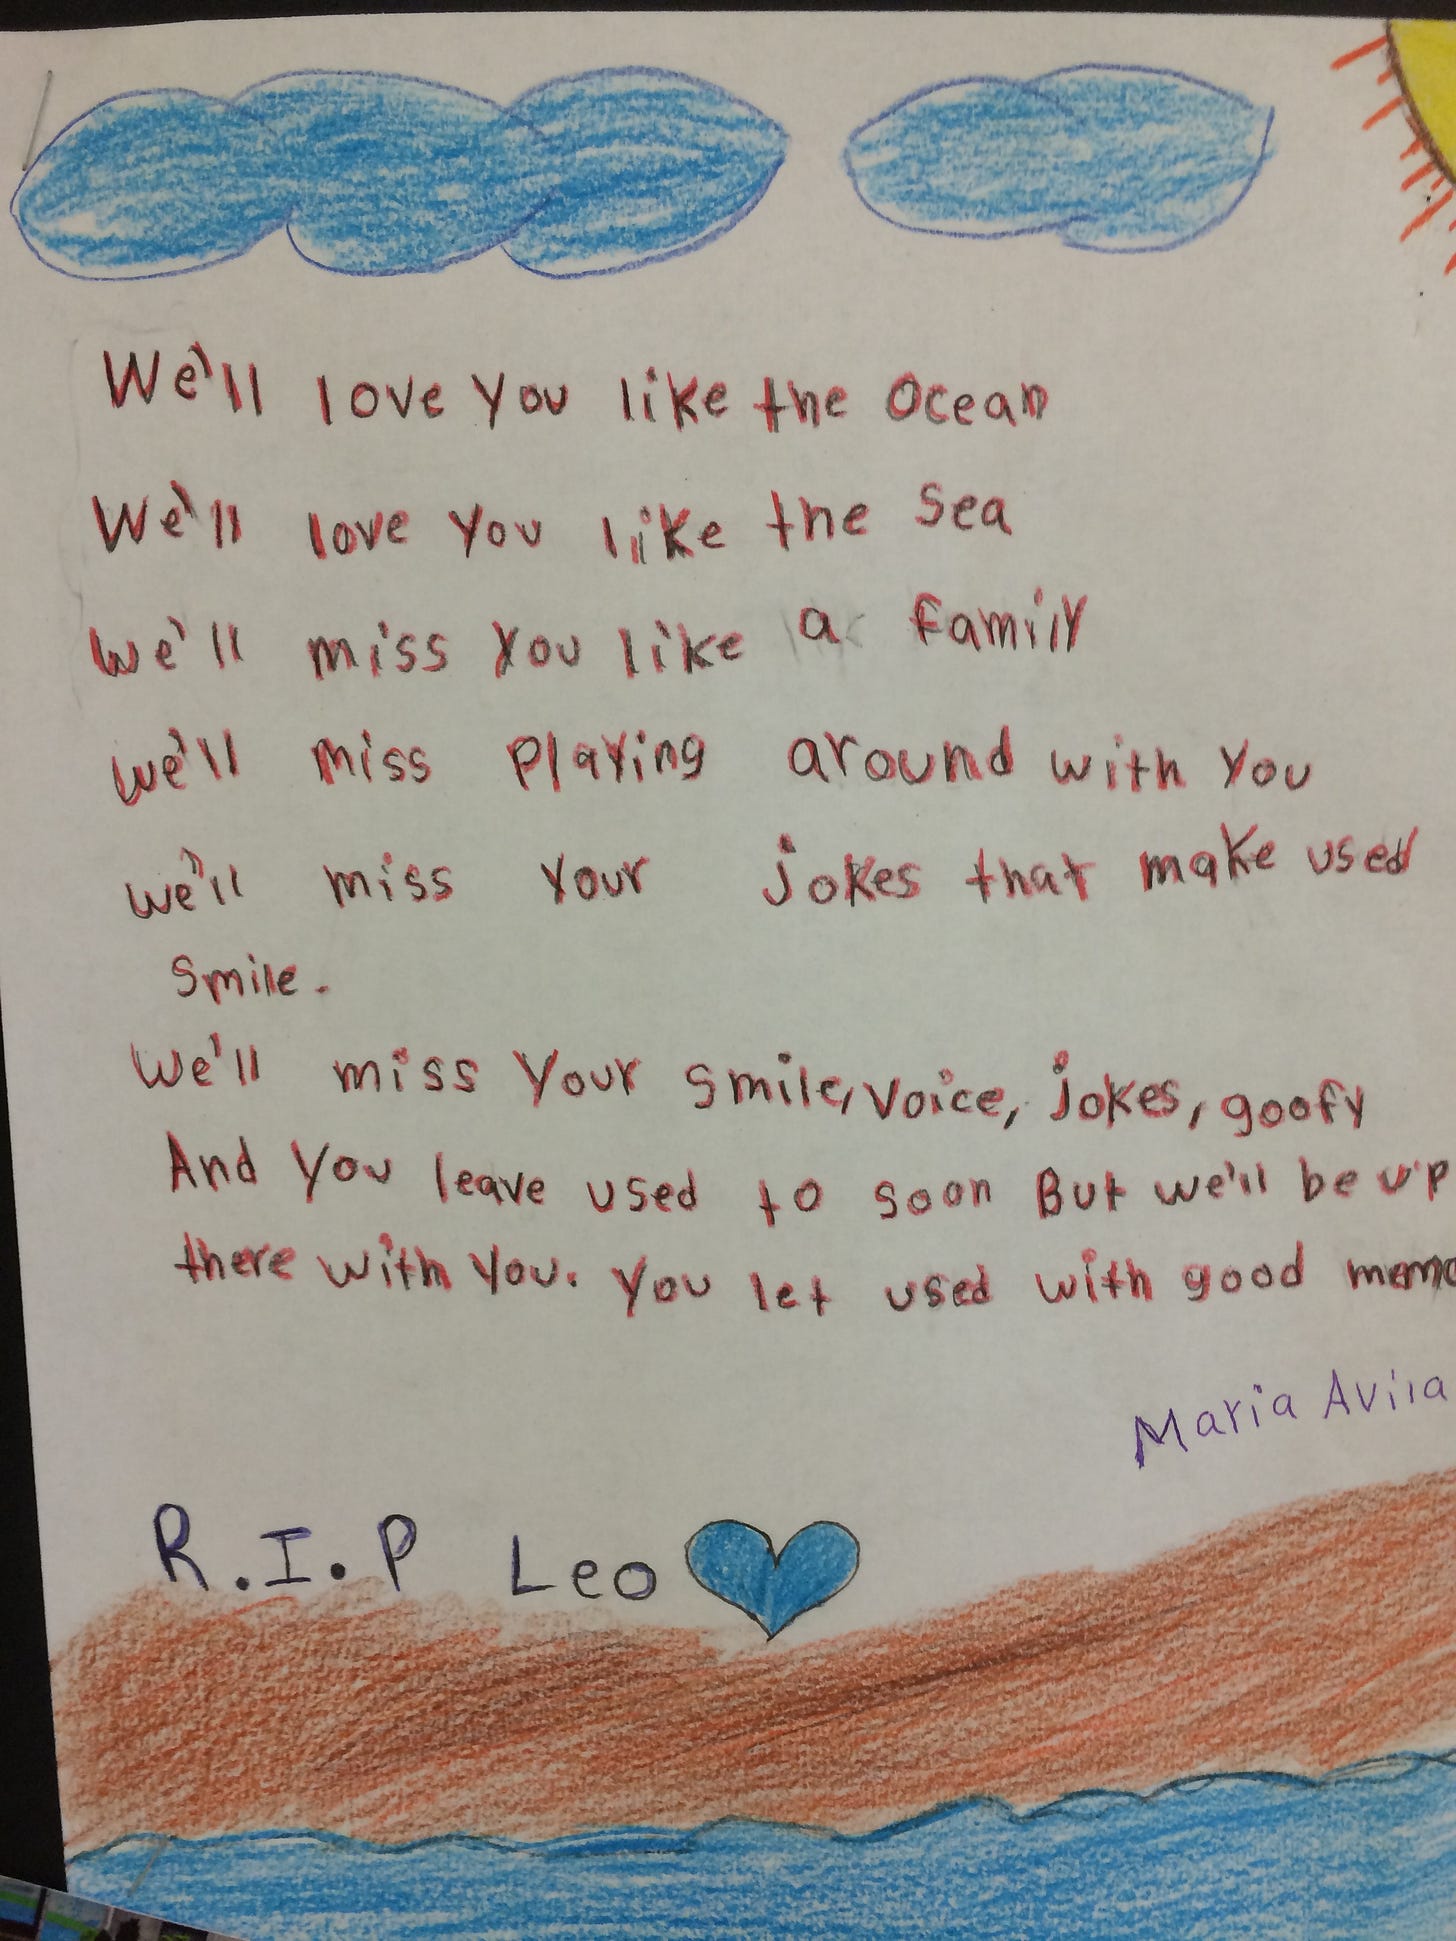 We'll love you like the Ocean
We'll love you like the Sea
We'll miss you like a family
We'll miss playing around with you
We'll miss your jokes that make used
Smile.
We'll miss your smile, voice, jokes, goofy
And you leave used to soon But we'll be up
there with you. you let used with good
Maria Avila
R.I.P Leo